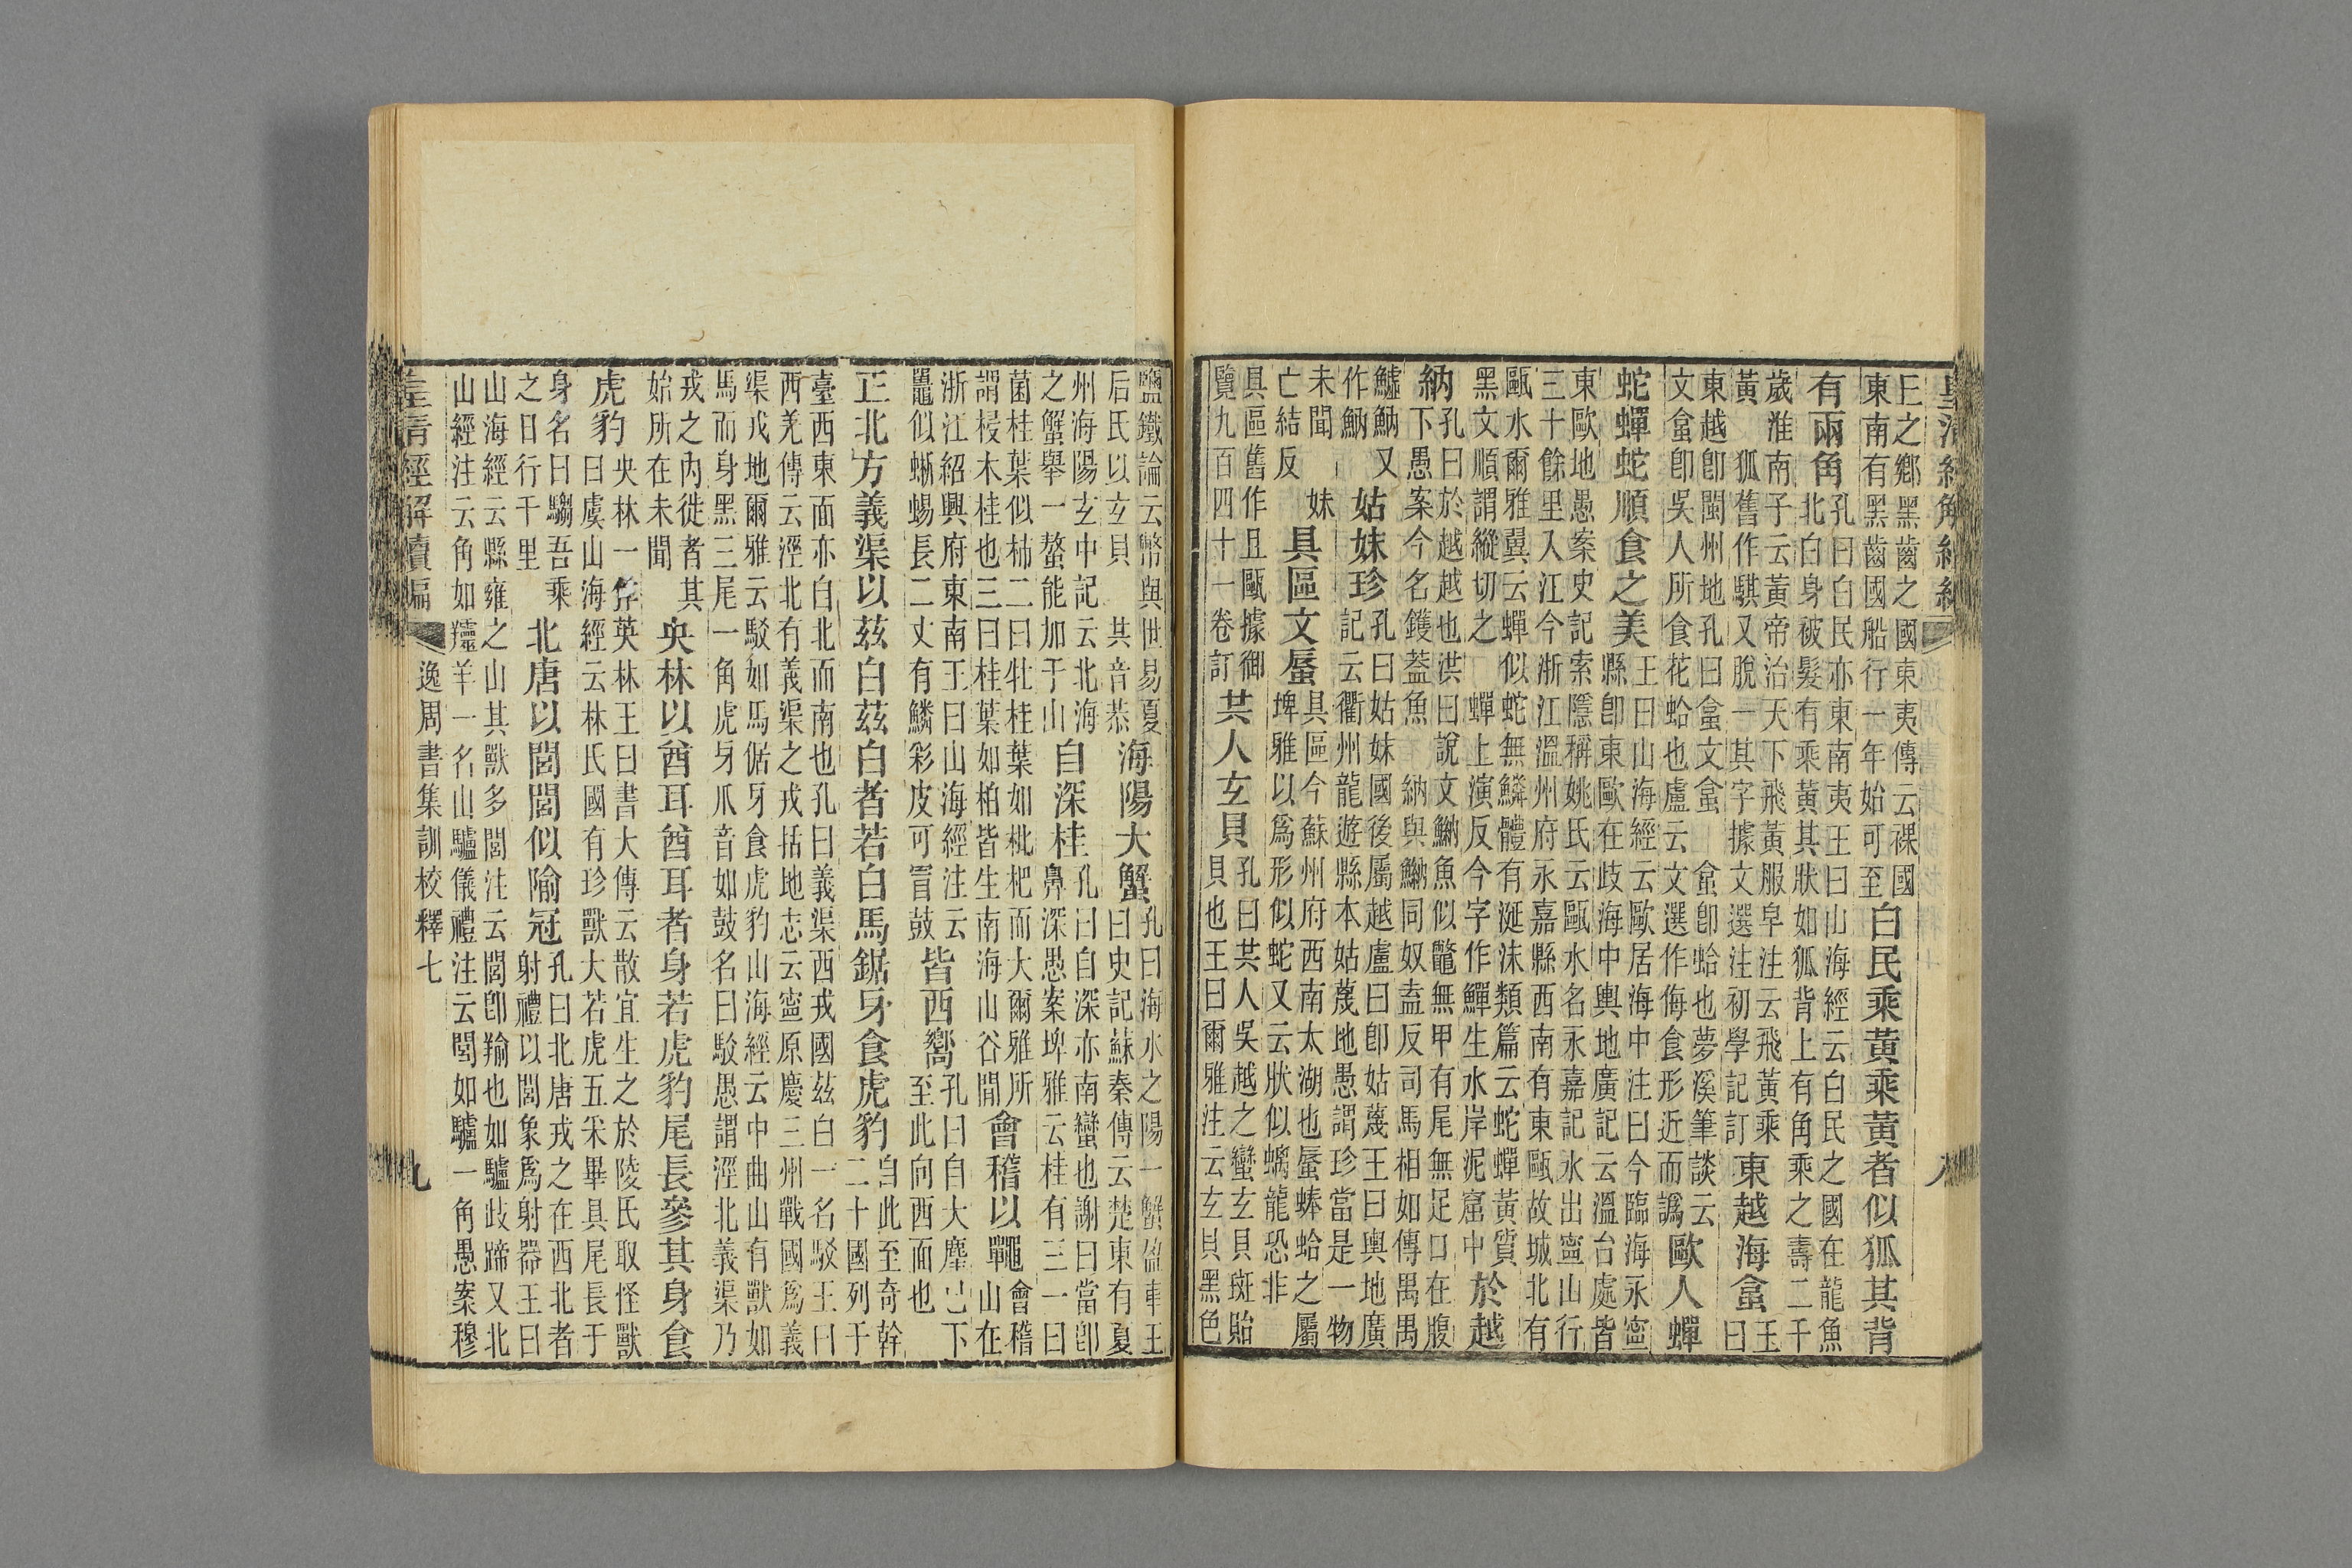 皇清經解續編
八
王之鄉黑齒之國東夷傳云裸國
東南有黑齒國船行一年始可至
白民乘黃乘黃者似狐其背
有兩角
孔曰白民亦東南夷王曰山海經云白民之國在龍魚
北白身被髮有乘黃其狀如狐背上有角乘之壽二千
歲淮南子云黃帝治天下飛黃服皁注云飛黃乘
黃 狐舊作騏又脫一其字據文選注初學記訂
東越海𧊧
王
曰
東越即閩州地孔曰𧊧文𧊧 𧊧即蛤也夢溪筆談云
文𧊧即吳人所食花蛤也盧云文選作侮食形近而譌
歐人蟬
蛇蟬蛇順食之美
王曰山海經云歐居海中注曰今臨海永寧
縣即東歐在歧海中輿地廣記云溫台處皆
東歐地愚案史記索隱稱姚氏云甌水名永嘉記水出寧山行
三十餘里入江今浙江溫州府永嘉縣西南有東甌故城北有
甌水爾雅翼云蟬似蛇無鱗體有涎沫類篇云蛇蟬黃質
黑文順謂縱切之 蟬上演反今字作鱓生水岸泥窟中
於越
納
孔曰於越越也洪曰說文魶魚似鼈無甲有尾無足口在腹
下愚案今名鑊蓋魚 納與魶同奴盍反司馬相如傳禺禺
鱋魶又
作魶
姑妹珍
孔曰姑妹國後屬越盧曰即姑蔑王曰輿地廣
記云衢州龍遊縣本姑蔑地愚謂珍當是一物
未聞 妹
亡結反
具區文蜃
具區今蘇州府西南太湖也蜃蜯蛤之屬
埤雅以為形似蛇又云狀似螭龍恐非
具區舊作且甌據御
覽九百四十一卷訂
共人玄貝
孔曰共人吳越之蠻玄貝斑貽
貝也王曰爾雅注云玄貝黑色
鹽鐵論云幣與世易夏
后氏以玄貝 共音恭
海陽大蟹
孔曰海水之陽一蟹盈車王
曰史記蘇秦傳云楚東有夏
州海陽玄中記云北海
之蟹舉一螯能加于山
自深桂
孔曰自深亦南蠻也謝曰當即
鼻深愚案埤雅云桂有三一曰
菌桂葉似柿二曰牡桂葉如枇杷而大爾雅所
謂梫木桂也三曰桂葉如柏皆生南海山谷閒
會稽以鼉
會稽
山在
浙江紹興府東南王曰山海經注云
鼉似蜥蜴長二丈有鱗彩皮可冒鼓
皆西嚮
孔曰自大塵已下
至此向西面也
正北方義渠以茲白茲白者若白馬鋸牙食虎豹
自此至奇幹
二十國列于
臺西東面亦白北而南也孔曰義渠西戎國茲白一名駮王曰
西羌傳云涇北有義渠之戎括地志云寧原慶三州戰國為義
渠戎地爾雅云駮如馬倨牙食虎豹山海經云中曲山有獸如
馬而身黑三尾一角虎牙爪音如鼓名曰駮愚謂涇北義渠乃
戎之內徙者其
始所在未聞
央林以酋耳酋耳者身若虎豹尾長參其身食
虎豹
央林一作英林王曰書大傳云散宜生之於陵氏取怪獸
曰虞山海經云林氏國有珍獸大若虎五采畢具尾長于
身名曰騶吾乘
之日行千里
北唐以閭閭似隃冠
孔曰北唐戎之在西北者
射禮以閭象為射器王曰
山海經云縣雍之山其獸多閭注云閭即羭也如驢歧蹄又北
山經注云角如羬羊一名山驢儀禮注云閭如驢一角愚案穆
皇清經解續編
逸周書集訓校釋七
九